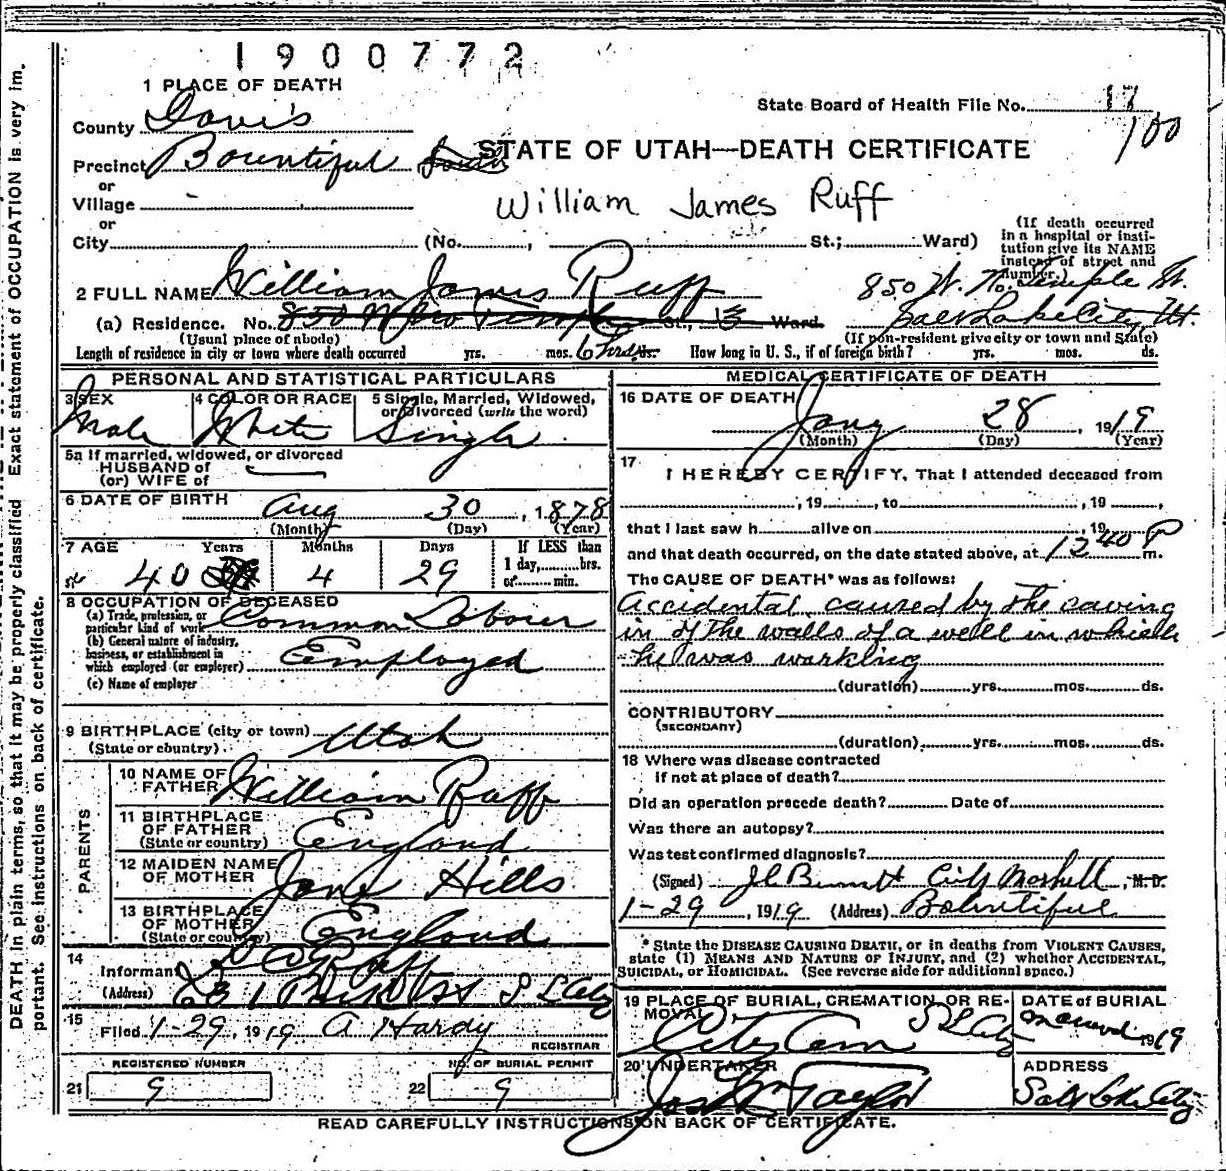 1900772
1 PLACE OF DEATH
State Board of Health File No. 17
100
County Davis
Precinct Bountiful
STATE OF UTAH—DEATH CERTIFICATE
or
Village
William James Ruff
or
City (No. , St.; Ward)
(If death occurred in a hospital or institution give its NAME instead of street and number.)
2 FULL NAME William James Ruff
850 W. No. Temple St.
(a) Residence. No. 850 W No Temple St., 13 Ward. Salt Lake City, Ut.
(Usual place of abode) (If non-resident give city or town and State)
Length of residence in city or town where death occurred yrs. mos. 6 hrs ds. How long in U. S., if of foreign birth? yrs. mos. ds.
PERSONAL AND STATISTICAL PARTICULARS
3 SEX 4 COLOR OR RACE 5 Single, Married, Widowed, or Divorced (write the word)
Male White Single
5a If married, widowed, or divorced
HUSBAND of
(or) WIFE of
6 DATE OF BIRTH Aug 30, 1878
(Month) (Day) (Year)
7 AGE Years Months Days If LESS than
1 day, hrs.
or min.
40 4 29
8 OCCUPATION OF DECEASED
(a) Trade, profession, or particular kind of work Common Labour
(b) General nature of industry, business, or establishment in which employed (or employer) Employed
(c) Name of employer
9 BIRTHPLACE (city or town) Utah
(State or country)
PARENTS
10 NAME OF FATHER William Ruff
11 BIRTHPLACE OF FATHER England
(State or country)
12 MAIDEN NAME OF MOTHER Jane Hills
13 BIRTHPLACE OF MOTHER England
(State or country)
14
Informant Ruff
(Address) S L City
15
Filed 1-29, 1919 A Hardy
REGISTRAR
REGISTERED NUMBER NO. OF BURIAL PERMIT
21 9 22 9
MEDICAL CERTIFICATE OF DEATH
16 DATE OF DEATH Jany 28, 1919
(Month) (Day) (Year)
17
I HEREBY CERTIFY, That I attended deceased from
, 19 , to , 19 ,
that I last saw h alive on , 19
and that death occurred, on the date stated above, at 12 40 P m.
The CAUSE OF DEATH* was as follows:
Accidental, caused by the caving
in of the walls of a well in which
he was working
(duration) yrs. mos. ds.
CONTRIBUTORY
(SECONDARY)
(duration) yrs. mos. ds.
18 Where was disease contracted
if not at place of death?
Did an operation precede death? Date of
Was there an autopsy?
Was test confirmed diagnosis?
(Signed) City Marshall, M. D.
1-29, 1919 (Address) Bountiful
* State the DISEASE CAUSING DEATH, or in deaths from VIOLENT CAUSES,
state (1) MEANS AND NATURE OF INJURY, and (2) whether ACCIDENTAL,
SUICIDAL, or HOMICIDAL. (See reverse side for additional space.)
19 PLACE OF BURIAL, CREMATION, OR REMOVAL DATE of BURIAL
City Cem S L City 1919
20 UNDERTAKER ADDRESS
Jos Wm Taylor Salt Lake City
READ CAREFULLY INSTRUCTIONS ON BACK OF CERTIFICATE.
DEATH in plain terms, so that it may be properly classified Exact statement of OCCUPATION is very im-
portant. See instructions on back of certificate.